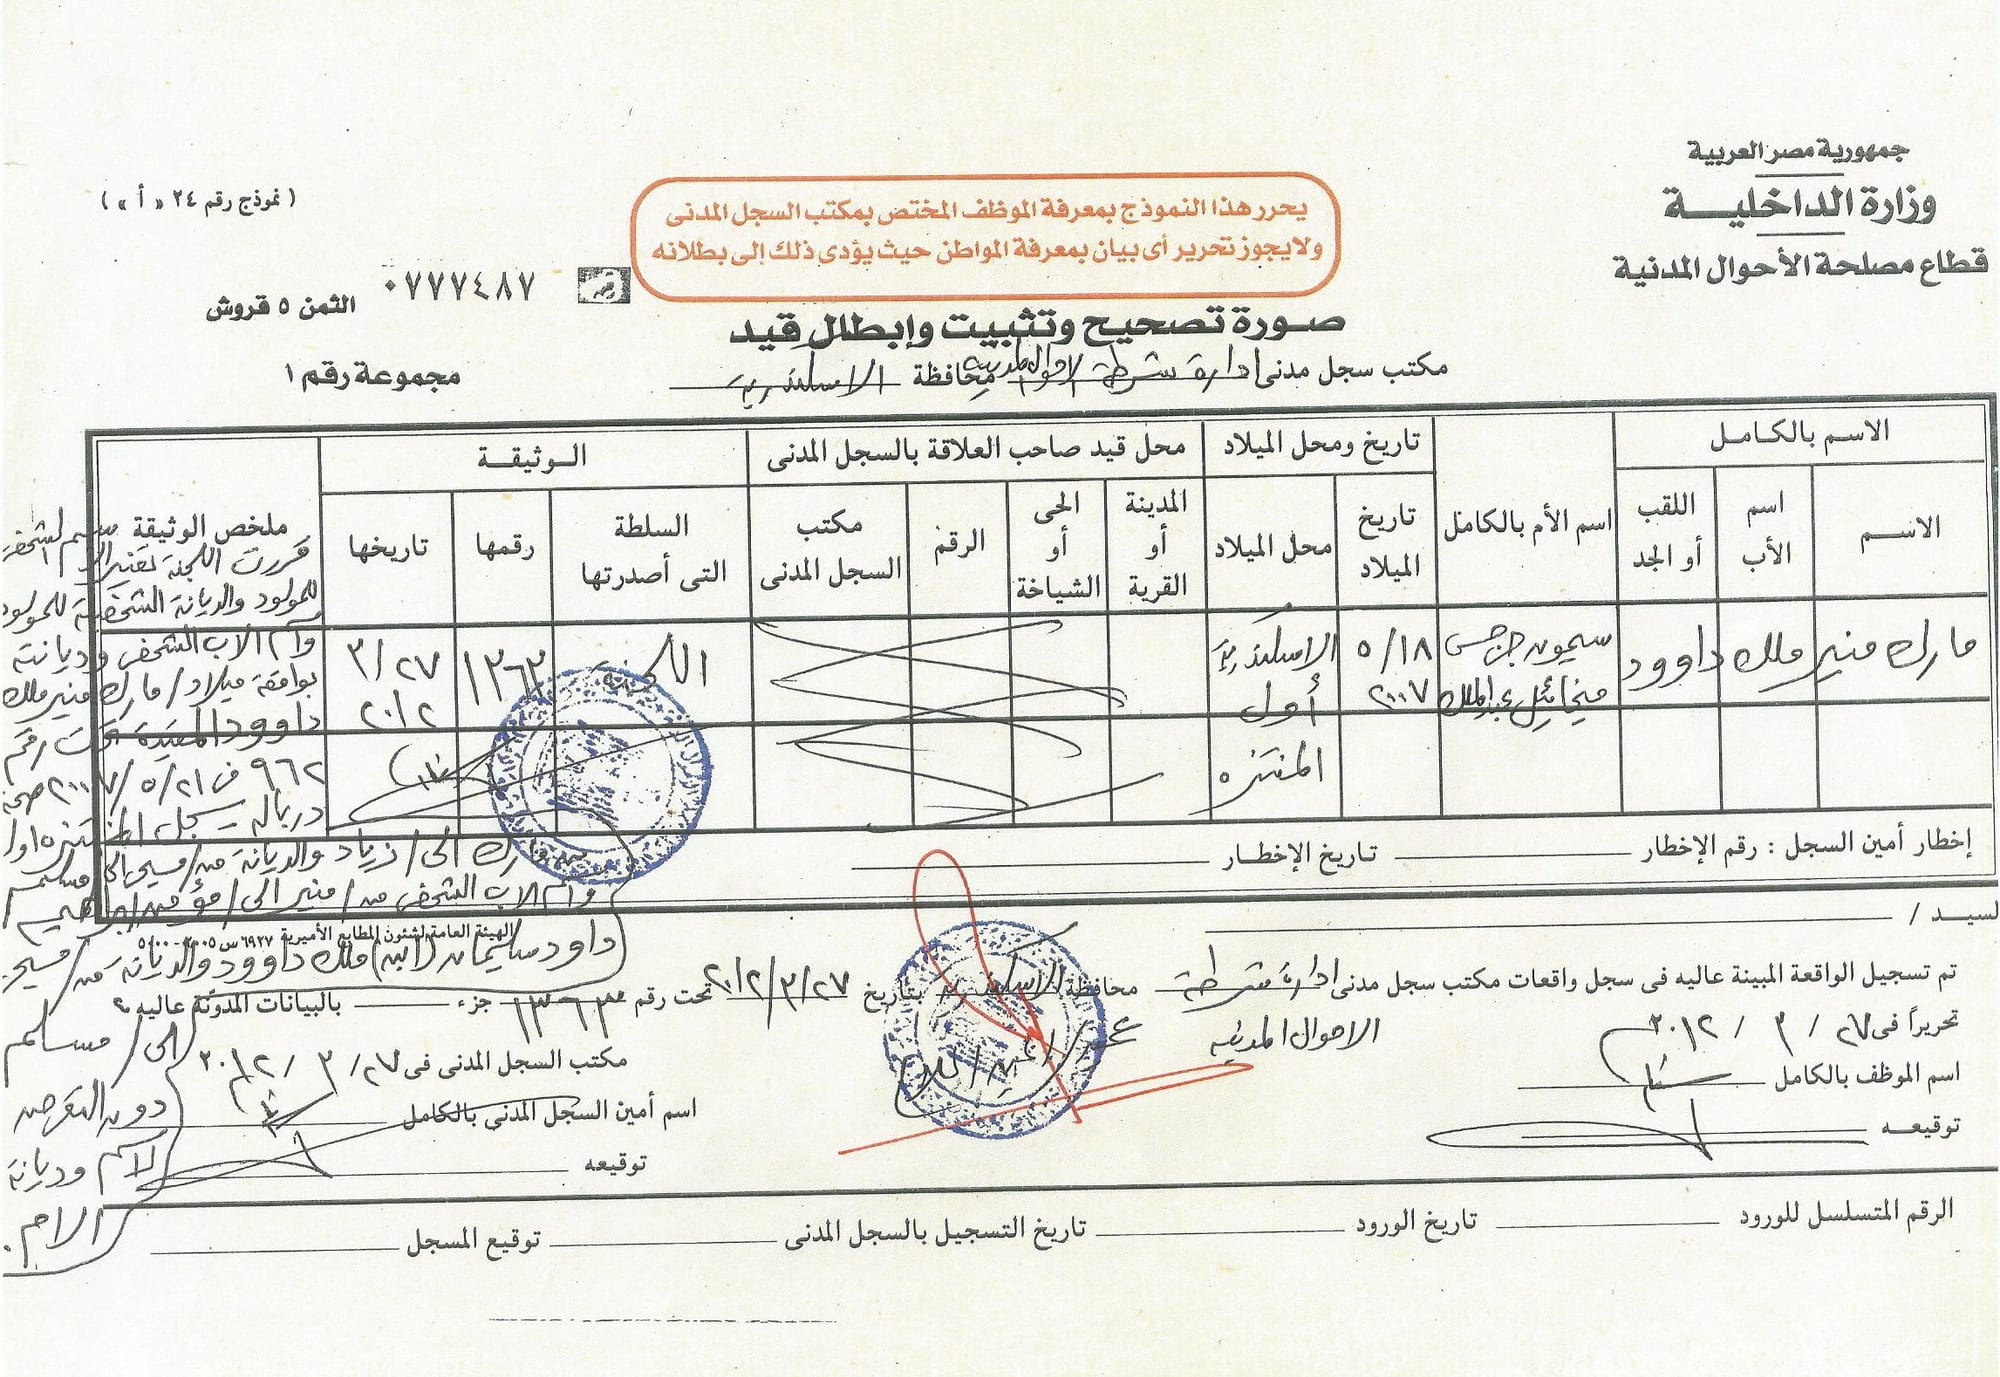 جمهورية مصر العربية
وزارة الداخلية
قطاع مصلحة الأحوال المدنية
يحرر هذا النموذج بمعرفة الموظف المختص بمكتب السجل المدنى
ولا يجوز تحرير أى بيان بمعرفة المواطن حيث يؤدى ذلك إلى بطلانه
( نموذج رقم ٢٤ « أ » )
٠٧٧٧٤٨٧
الثمن ٥ قروش
مجموعة رقم ١
صورة تصحيح وتثبيت وإبطال قيد
مكتب سجل مدنى ادارة شرطة الاحوال المدنية محافظة الاسكندرية
الاسم بالكامل
الاســم
اسم الأب
اللقب أو الجد
اسم الأم بالكامل
تاريخ ومحل الميلاد
تاريخ الميلاد
محل الميلاد
محل قيد صاحب العلاقة بالسجل المدنى
المدينة أو القرية
الحى أو الشياخة
الرقم
مكتب السجل المدنى
الوثيقة
السلطة التى أصدرتها
رقمها
تاريخها
ملخص الوثيقة
مارك منير ملك داوود
سيمون جرجس
ميخائيل عبد الملك
٥/١٨
٢٠٠٧
الاسكندرية
أول
المنتزه
اللجنة
١٣٦٣
٣/٢٧
٢٠١٢
قررت اللجنة تغير اسم الشخص
للمولود والديانة الشخصية للمولود
واسم الاب الشخص وديانته
بواقعة ميلاد / مارك منير ملك
داوود المقيدة تحت رقم
٩٦٢ فى ٢١/٥/٢٠٠٧ صحة
سجل المنتزه اول
من مارك الى / زياد والديانة من / مسيحى الى / مسلم
واسم الاب الشخص من / منير الى / مؤمن ابراهيم
داود سليمان (ابن) ملك داوود والديانة من / مسيحى
الى / مسلم
دون التعرض
لاسم وديانة
الام .
إخطار أمين السجل : رقم الإخطار تاريخ الإخطار
الهيئة العامة لشئون المطابع الأميرية ٦٩٢٧ س ٢٠٠٥ - ٥٠٠٠
لسيد /
تم تسجيل الواقعة المبينة عاليه فى سجل واقعات مكتب سجل مدنى ادارة شرطة محافظة الاسكندرية بتاريخ ٢٠١٢/٣/٢٧ تحت رقم ١٣٦٣ جزء بالبيانات المدونة عاليه
الاحوال المدنية
تحريراً فى ٢٧ / ٣ / ٢٠١٢
مكتب السجل المدنى فى ٢٧ / ٣ / ٢٠١٢
اسم الموظف بالكامل
اسم أمين السجل المدنى بالكامل
توقيعه
توقيعه
الرقم المتسلسل للورود تاريخ الورود تاريخ التسجيل بالسجل المدنى توقيع المسجل